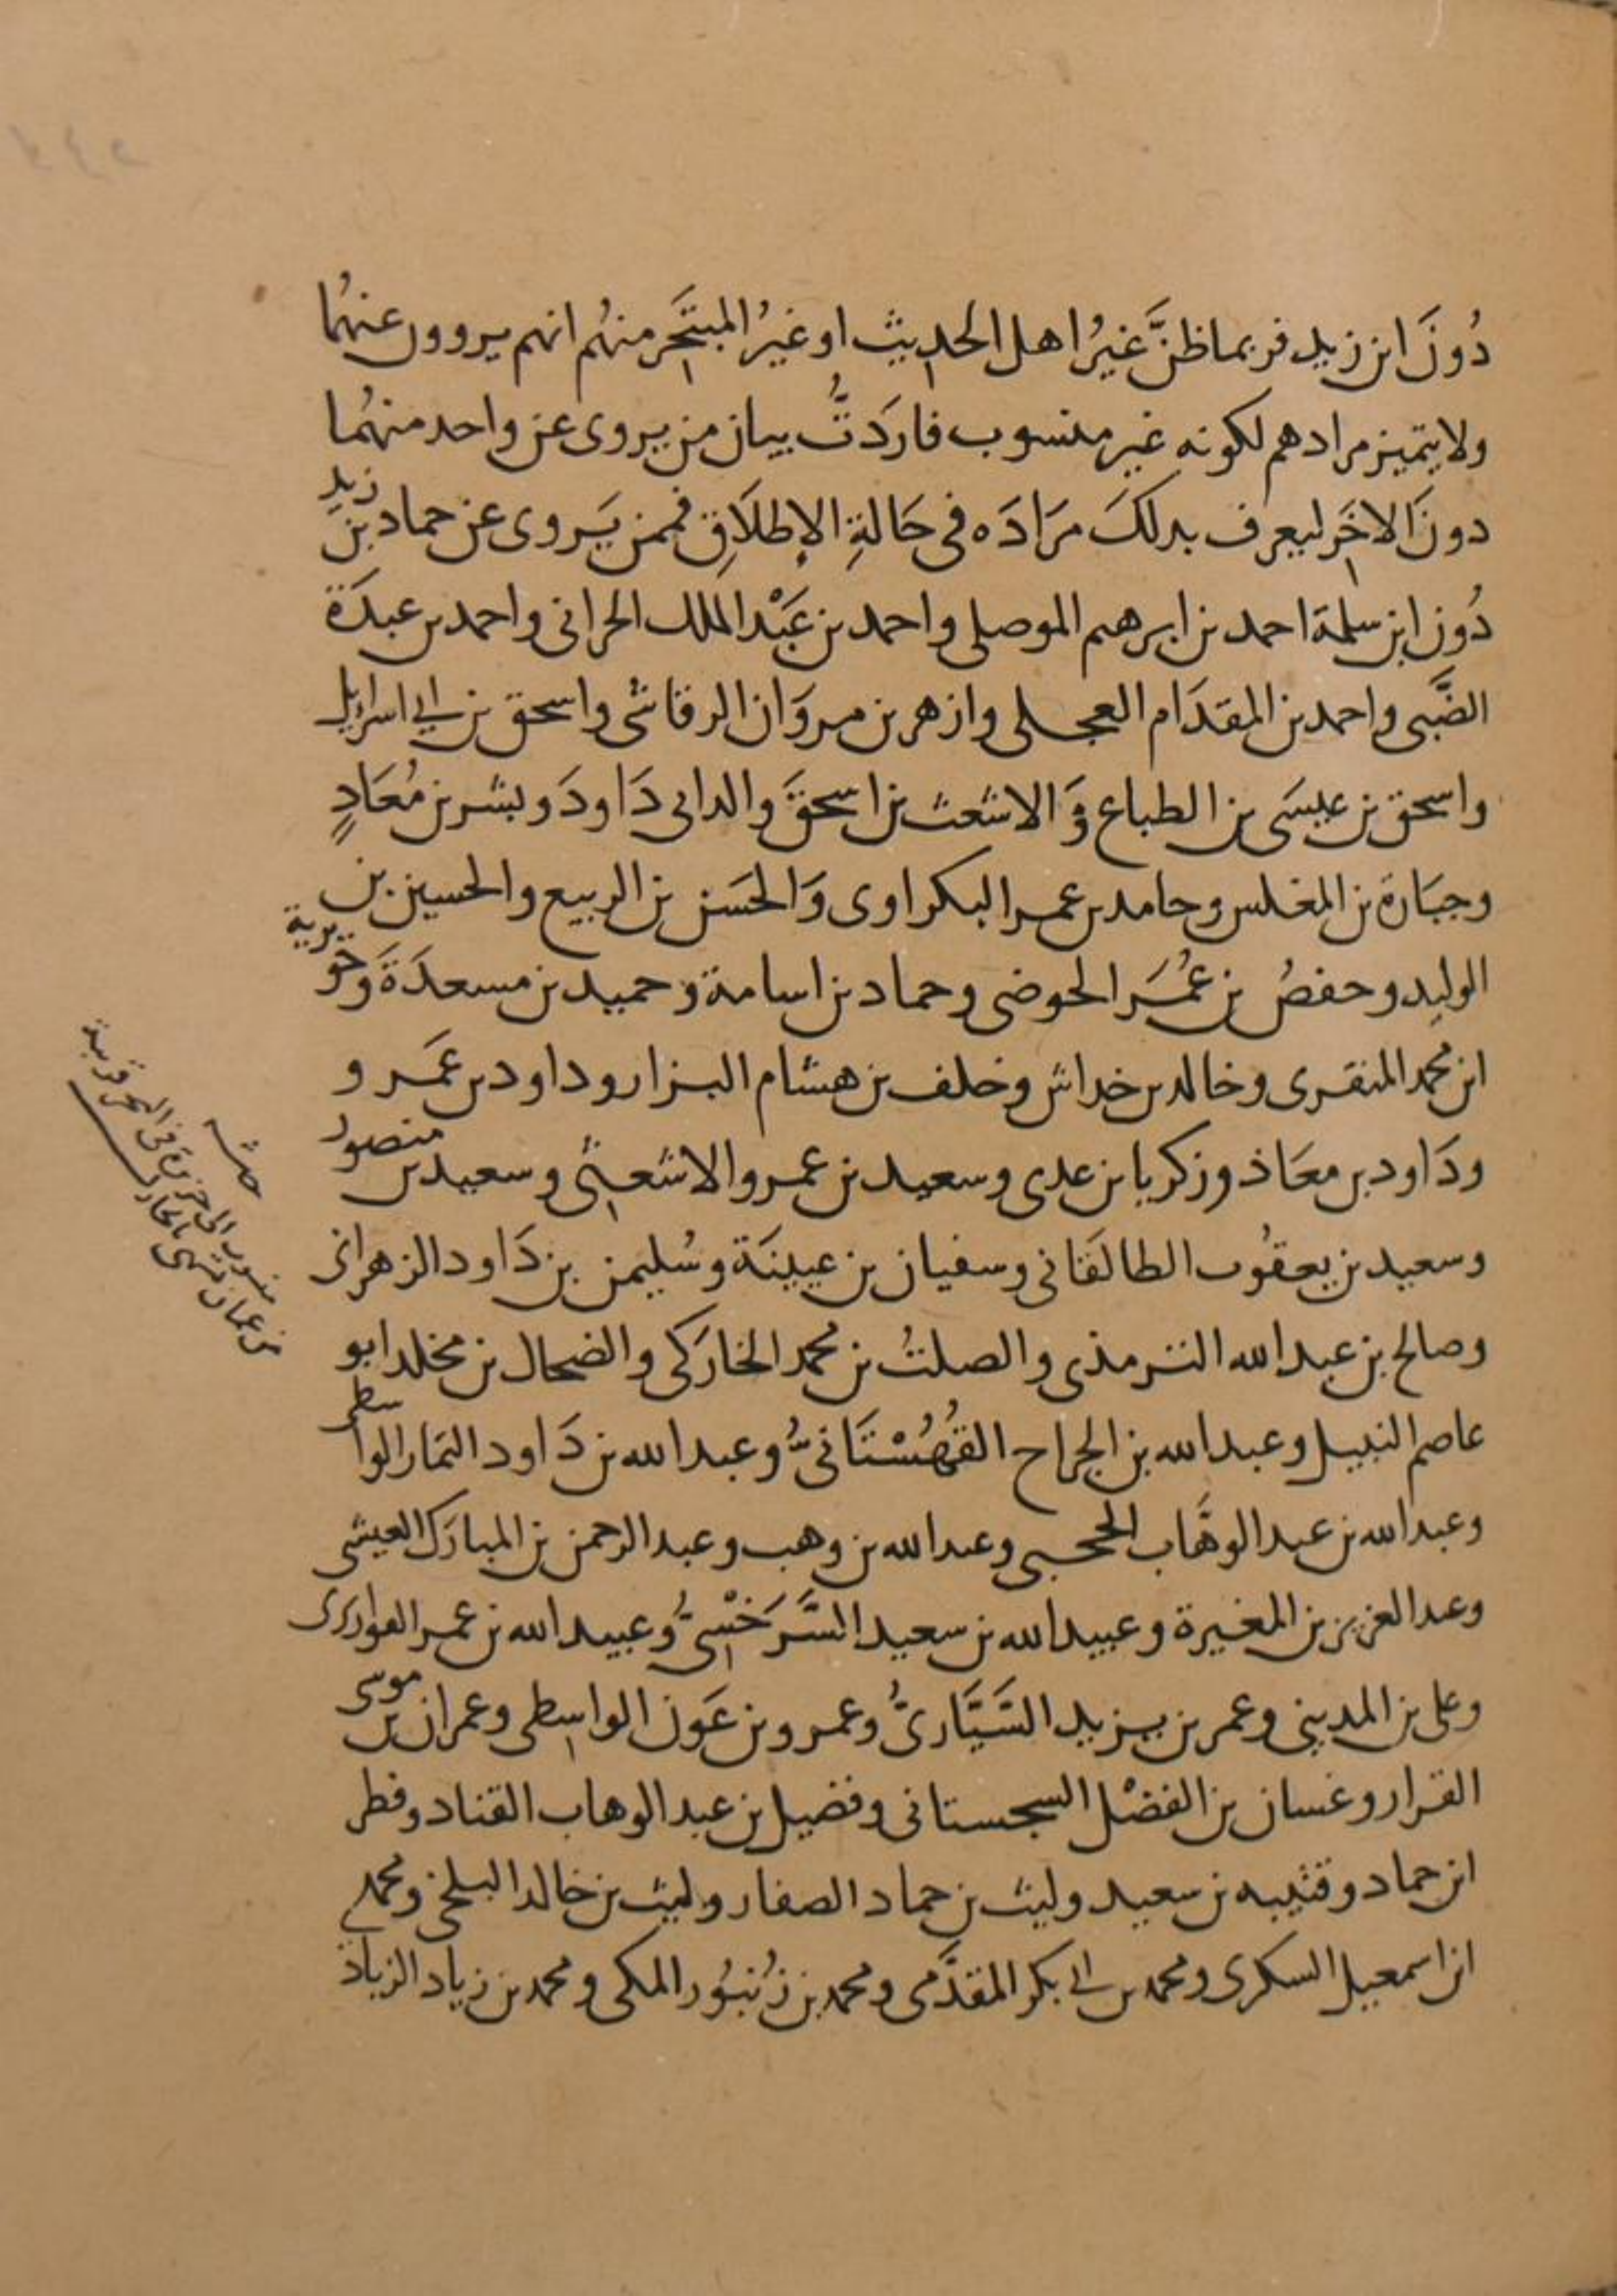 دُونَ ابن زيد فربما ظنَّ غيرُ اهل الحديث او غيرُ المتبَحِّر منهُم انهم يروون عنهُما
ولا يتميز مرادهم لكونه غير منسوب فاردَتُّ بيان من يروى عن واحد منهُما
دونَ الاخَر ليعرف بدلكَ مرَادَه فى حَالةِ الإطلاَقِ فممن يَروى عن حماد بن زيدٍ
دُون ابن سلمة احمد بن ابرهيم الموصلى واحمد بن عَبْد الملك الحرانى واحمد بن عبدَة
الضَّبى واحمد بن المقدَام العجلى وازهر بن مروَان الرقاشى واسحق بن ابى اسرايل
واسحق بن عيسَى بن الطباع وَالاشعث بن اسحَقَ والد ابى دَاودَ وبشر بن مُعَادٍ
وجبَارة بن المغلس وحامد بن عمر البكراوى وَالحسَن بن الربيع والحسين بن
الوليد وحفصُ بن عُمَر الحوضى وحماد بن اسامة وحميد بن مسعدَة وَحويرية
ابن محمد المنقرى وخالد بن خداش وخلف بن هشام البزار وداود بن عمَر و
ودَاود بن معَاذ وزكريا بن عدى وسعيد بن عمرو الاشعثى وسعيد بن منصور
وسعيد بن يعقُوب الطالقَانى وسفيان بن عيينَة وسُليمن بن دَاود الزهرانى
وصالح بن عبد الله الترمذى والصلتُ بن محمد الخارَكى والضحاك بن مخلد ابو
عاصم النبيل وعبد الله بن الجراح القُهُسْتَانىُّ وعبد الله بن دَاود التمار الواسطى
وعبد الله بن عبد الوهَّاب الحجبى وعبد الله بن وهب وعبد الرحمن بن المبارَك العيشى
وعبد العزيز بن المغيرة وعبيد الله بن سعيد السَّرَخْسِىُّ وعبيد الله بن عمر القواريرى
وعلى بن المدينى وعمر بن يزيد السَّيَّارىُّ وعمرو بن عَون الواسطى وعمران بن موسى
القزار وغسان بن الفضْل السجستانى وفضيل بن عبد الوهاب القناد وفطر
ابن حماد وقتيبه بن سعيد وليث بن حماد الصفار وليث بن خالد البلخى ومحمد
ابن اسمعيل السكرى ومحمد بن ابى بكر المقدَّمى ومحمد بن زُنبُور المكى ومحمد بن زياد الزيادى
منسوب الى جزيرة فى البحر قريبة
من عمان تسمى بالخارك